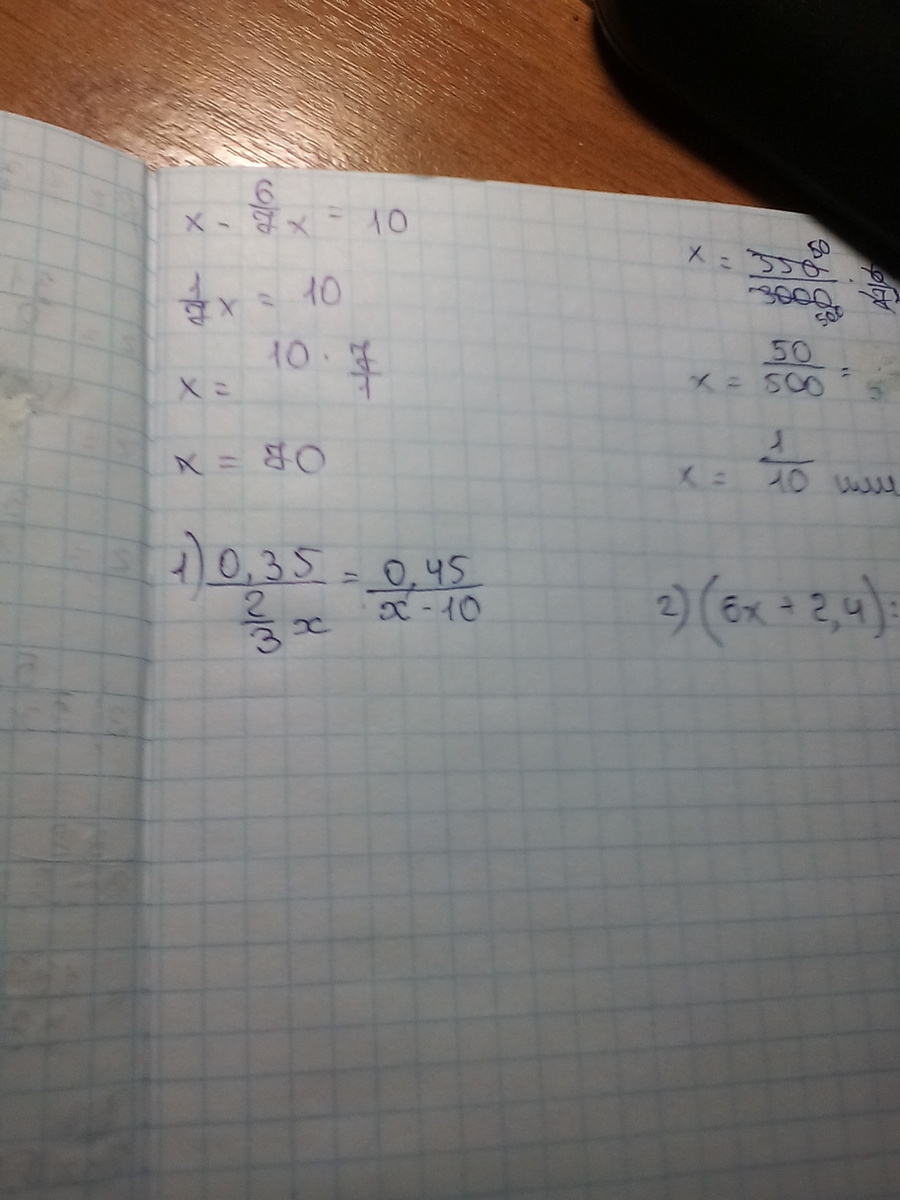 x - 6/7 x = 10
1/7 x = 10
x = 10 · 7/1
x = 70
1) 0,35 / 2/3 x = 0,45 / x - 10
x = 350 50 / 3000 500 ·
x = 50/500 =
x = 1/10 или
2) (6x + 2,4) :